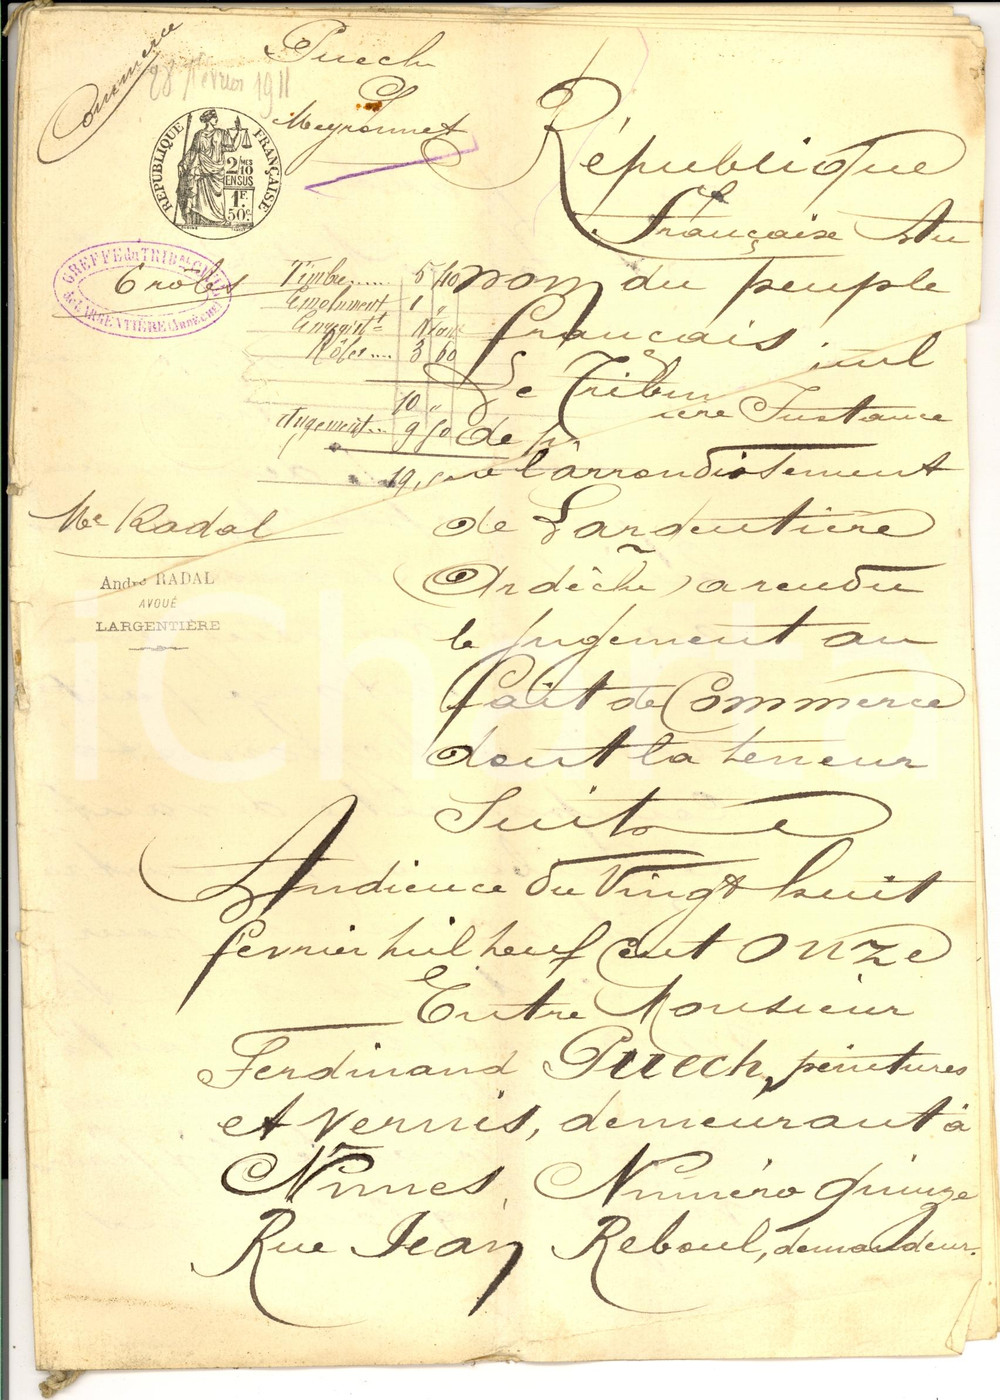 Commerce
28 février 1911
Puech
C
Meyronnet
RÉPUBLIQUE FRANÇAISE
2/10 MES
EN SUS
1F
50c
GREFFE du TRIBAL CIVIL
de LARGENTIÈRE (ARDÈCHE)
6 rôles
Timbre..... 5 40
Emolument 1 "
Enregist.t
Rôles.... 3 60
10 "
Jugement... 9 50
19,50
République
Française Au
nom du peuple
français
Le Tribunal civil
de première Instance
de l'arrondissement
de Largentière
(Ardèche) a rendu
le jugement au
fait de Commerce
dont la teneur
Suit
Me Radal
André RADAL
AVOUÉ
LARGENTIÈRE
Audience du Vingt huit
février mil neuf cent onze
Entre Monsieur
Ferdinand Puech, peintures
et vernis, demeurant à
Nîmes, Numéro quinze
Rue Jean Reboul, demandeur.
iCharta